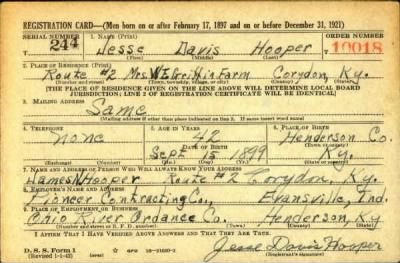 REGISTRATION CARD—(Men born on or after February 17, 1897 and on or before December 31, 1921)
SERIAL NUMBER 1. NAME (Print) ORDER NUMBER
244 Jesse Davis Hooper 10018
(First) (Middle) (Last)
2. PLACE OF RESIDENCE (Print)
Route #2 Mrs. W. E. Griffin Farm Corydon, Ky.
(Number and street) (Town, township, village, or city) (County) (State)
[THE PLACE OF RESIDENCE GIVEN ON THE LINE ABOVE WILL DETERMINE LOCAL BOARD
JURISDICTION; LINE 2 OF REGISTRATION CERTIFICATE WILL BE IDENTICAL]
3. MAILING ADDRESS
Same
[Mailing address if other than place indicated on line 2. If same insert word same]
4. TELEPHONE 5. AGE IN YEARS 6. PLACE OF BIRTH
none 42 Henderson Co.
DATE OF BIRTH (Town or county)
Sept 15 1899 Ky.
(Exchange) (Number) (Mo.) (Day) (Yr.) (State or country)
7. NAME AND ADDRESS OF PERSON WHO WILL ALWAYS KNOW YOUR ADDRESS
James N. Hooper Route #2 Corydon, Ky.
8. EMPLOYER'S NAME AND ADDRESS
Pioneer Contracting Co., Evansville, Ind.
9. PLACE OF EMPLOYMENT OR BUSINESS
Ohio River Ordance Co. Henderson, Ky.
(Number and street or R. F. D. number) (Town) (County) (State)
I AFFIRM THAT I HAVE VERIFIED ABOVE ANSWERS AND THAT THEY ARE TRUE.
D. S. S. Form 1 Jesse Davis Hooper
(Revised 1-1-42) (over) (Registrant's signature)